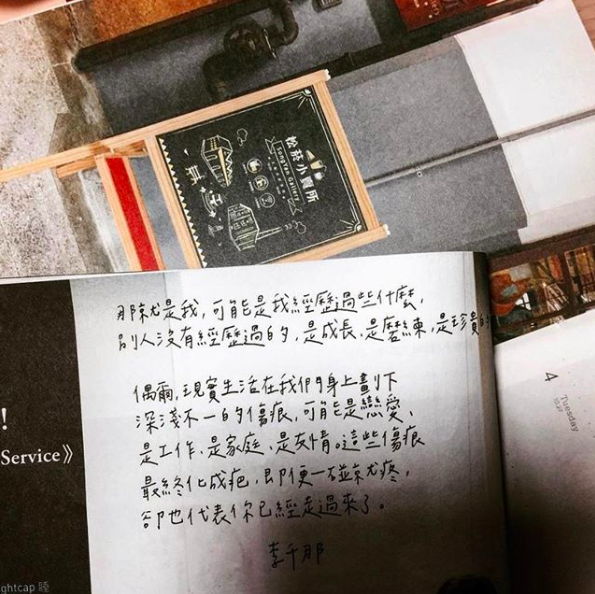 松菸小賣所
SongYan Gallery
那就是我，可能是我經歷過些什麼，
別人沒有經歷過的，是成長、是磨練，是珍貴的
偶爾，現實生活在我們身上劃下
深淺不一的傷痕，可能是戀愛、
是工作、是家庭、是友情。這些傷痕
最終化成疤，即便一碰就疼，
卻也代表你已經走過來了。
李千那
!
Service》
ghtcap 睡
4
Tuesday